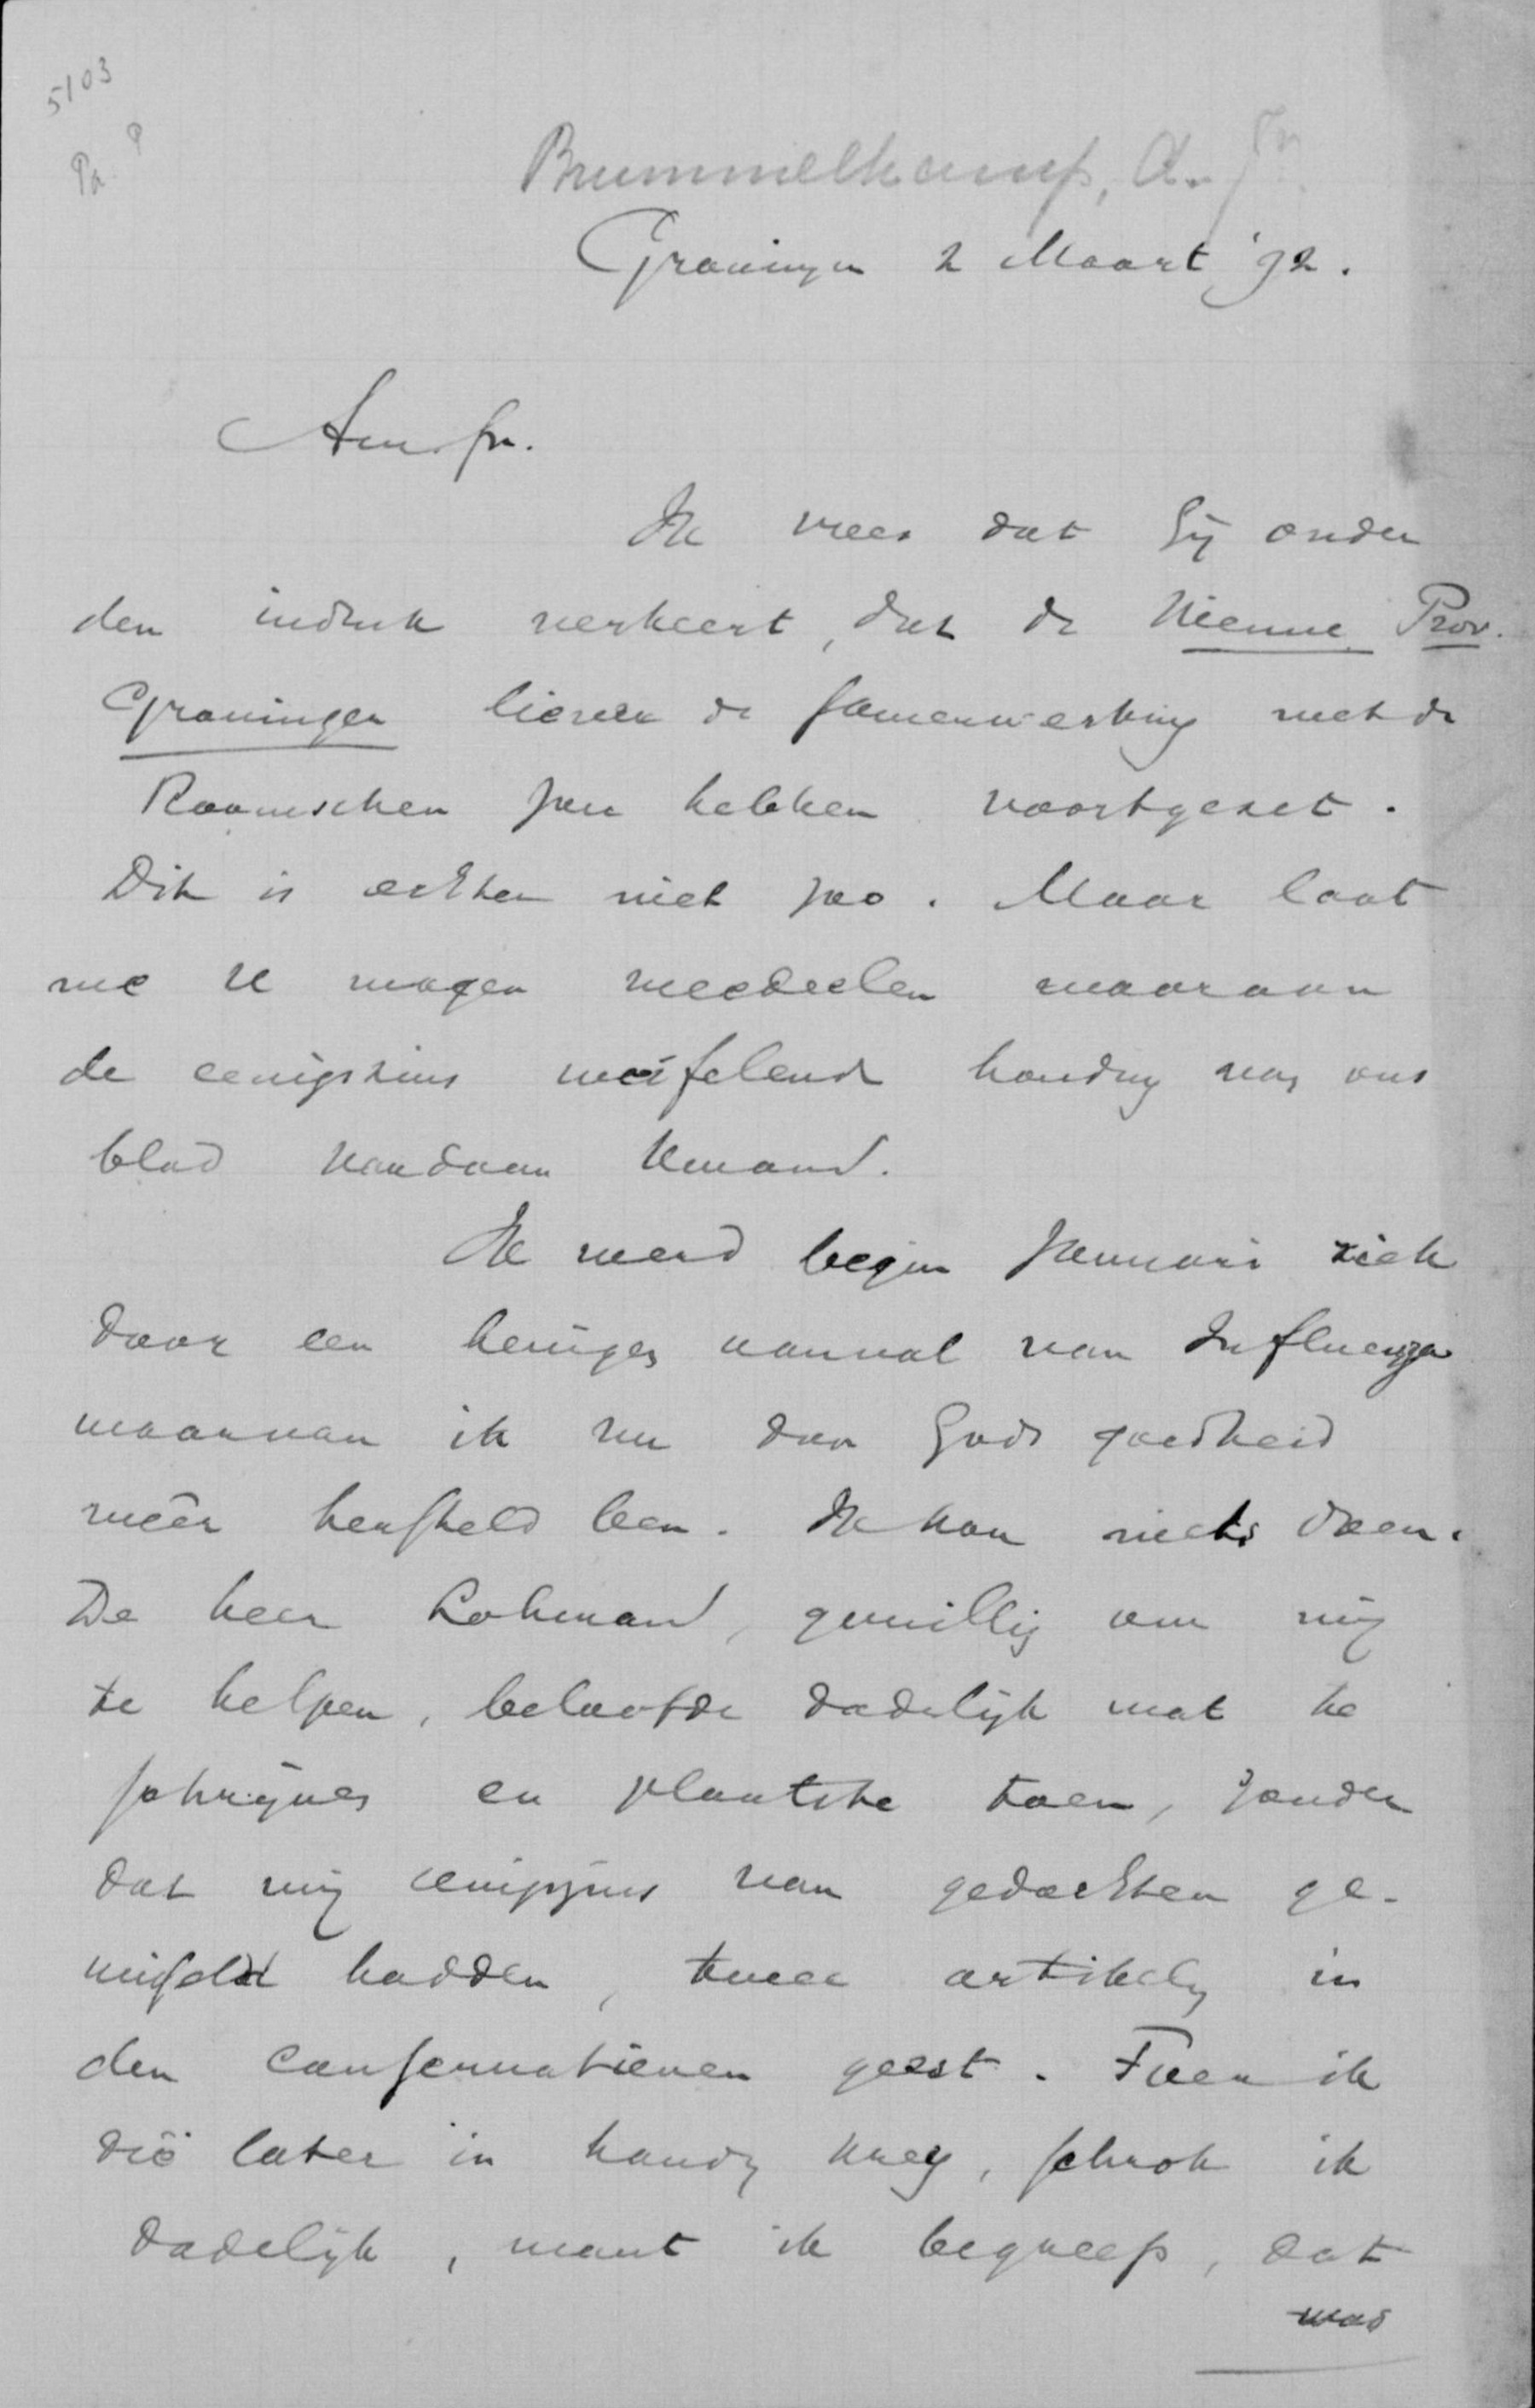 5103
Pa. P
Brummelkamp, A. Jr.
Groningen 2 Maart '92.
Am. fr.
Ik vrees dat Gij onder
den indruk verkeert, dat de Nieuwe Prov.
Groninger liever de samenwerking met de
Roomschen zou hebben voortgezet.
Dit is echter niet zoo. Maar laat
me U mogen meedeelen waaraan
de eenigszins weifelende houding van ons
blad vandaan kwam.
Ik werd begin Januari ziek
door een hevigen aanval van Influenza
waarvan ik nu door Gods goedheid
weêr hersteld ben. Ik kon niets doen.
De heer Lohman, gewillig om mij
te helpen, beloofde dadelijk wat te
schrijven en plaatste toen, zonder
dat wij eenigzins van gedachten ge-
wisseld hadden, twee artikelen in
den conservatieven geest. Toen ik
die later in handen kreeg, schrok ik
dadelijk, want ik begreep, dat
was